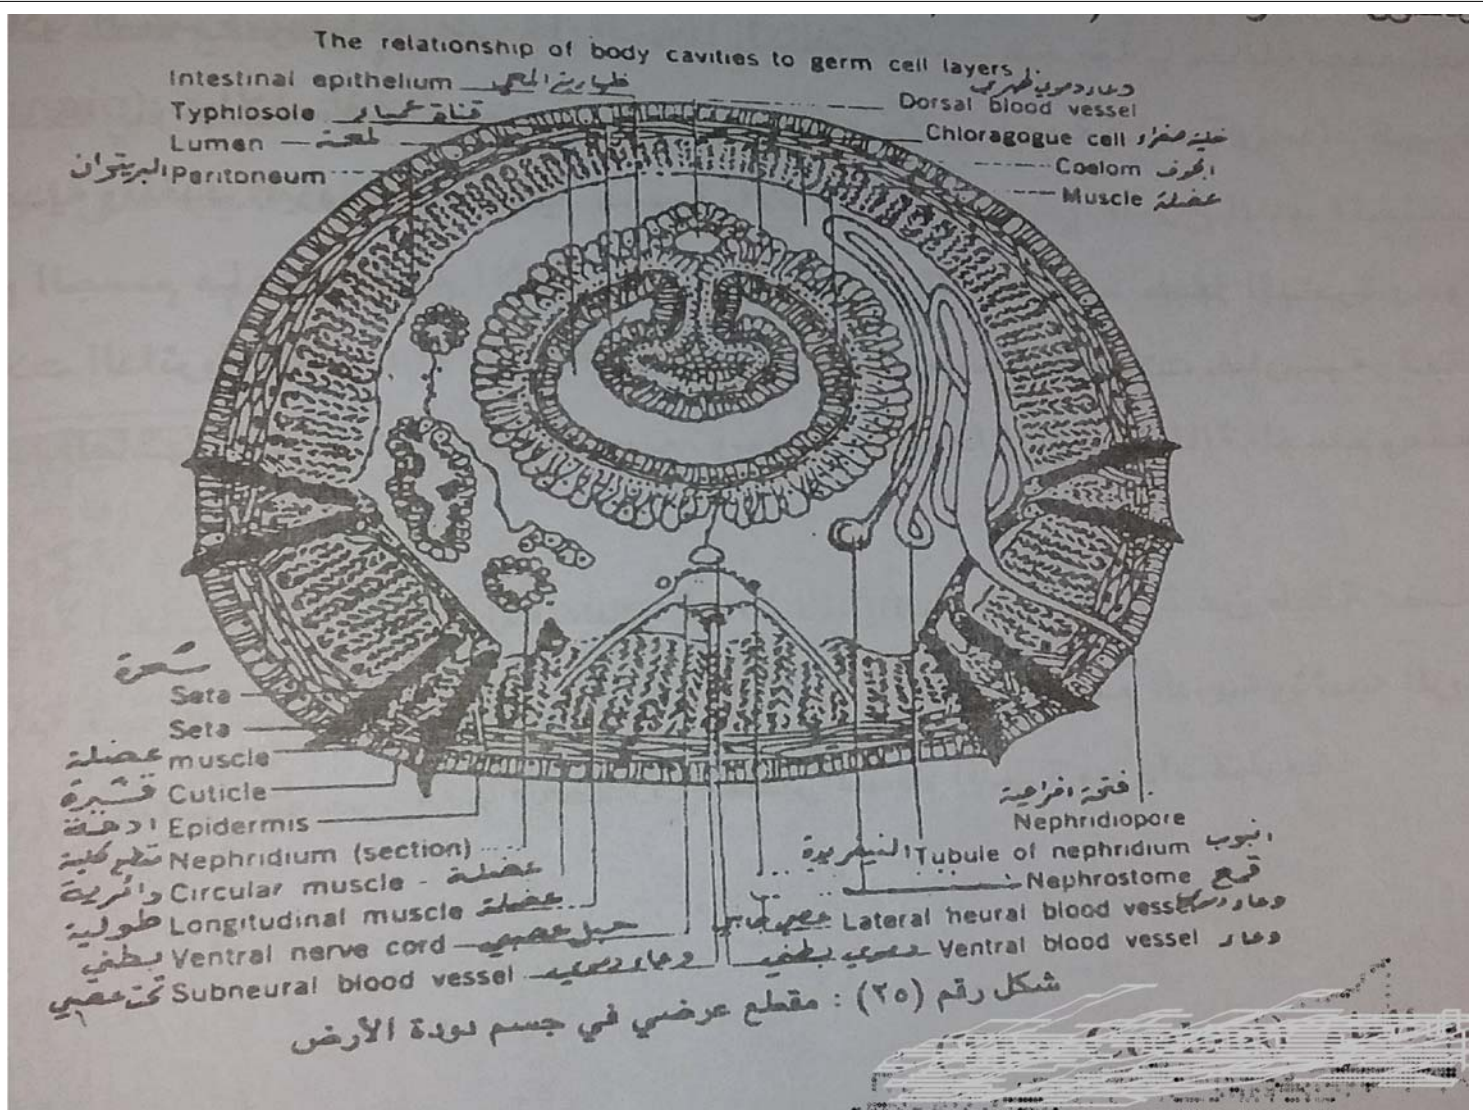 The relationship of body cavities to germ cell layers
Intestinal epithelium ظهارية المعي
Typhlosole قناة عمياء
Lumen لمعة
البريتوان Peritoneum
وعاء دموي ظهري
Dorsal blood vessel
Chloragogue cell خلية صفراء
Coelom الجوف
Muscle عضلة
شعرة
Seta
Seta
عضلة muscle
قشيرة Cuticle
Epidermis
مقطع كلية Nephridium (section)
دائرية Circular muscle عضلة
طولية Longitudinal muscle عضلة
بطني Ventral nerve cord حبل عصبي
تحت عصبي Subneural blood vessel وعاء دموي
فتحة اخراجية
Nephridiopore
النيفريدة Tubule of nephridium انبوب
Nephrostome قمع
عصبي جانبي Lateral neural blood vessel وعاء دموي
دموي بطني Ventral blood vessel وعاء
شكل رقم (٢٥) : مقطع عرضي في جسم دودة الأرض